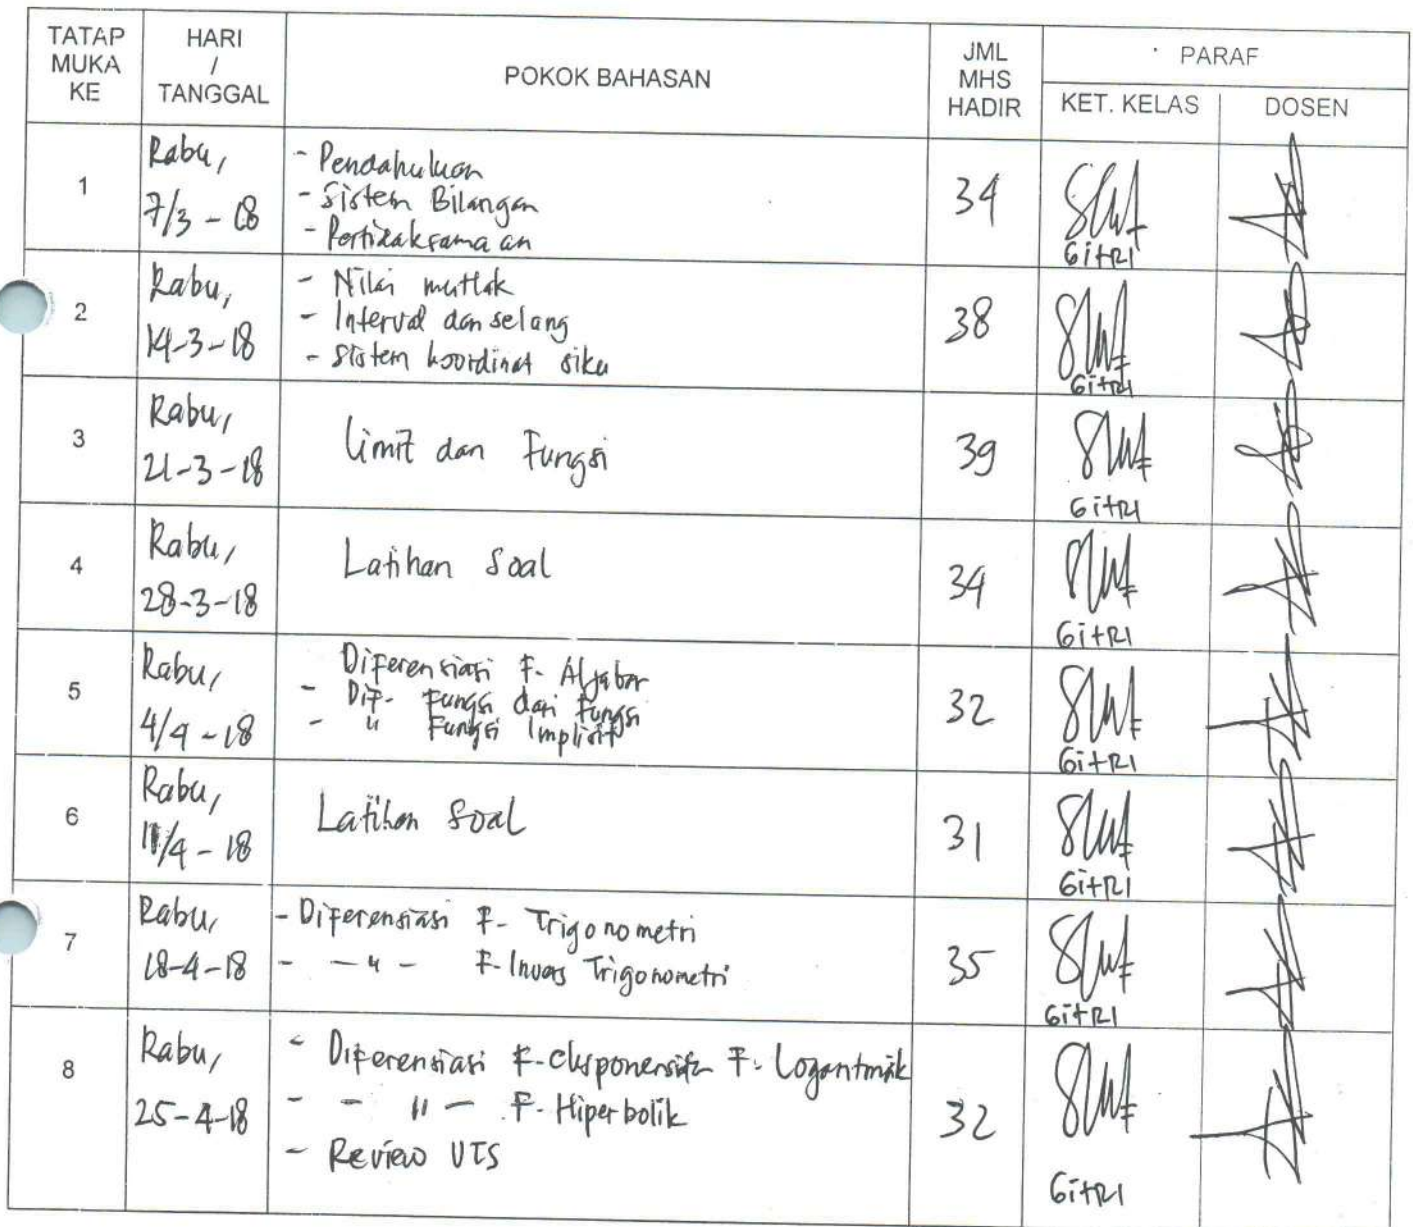 TATAP MUKA KE
HARI / TANGGAL
POKOK BAHASAN
JML MHS HADIR
PARAF
KET. KELAS
DOSEN
1
Rabu,
7/3 - 18
- Pendahuluan
- Sistem Bilangan
- Pertidaksamaan
34
GitRI
2
Rabu,
14-3-18
- Nilai mutlak
- Interval dan selang
- Sistem koordinat siku
38
GitRI
3
Rabu,
21-3-18
Limit dan Fungsi
39
GitRI
4
Rabu,
28-3-18
Latihan Soal
34
GitRI
5
Rabu,
4/4 - 18
Diferensiasi F. Aljabar
- Dif. Fungsi dari Fungsi
- " Fungsi Implisit
32
GitRI
6
Rabu,
11/4 - 18
Latihan Soal
31
GitRI
7
Rabu,
18-4-18
- Diferensiasi F. Trigonometri
- - " - F. Invers Trigonometri
35
GitRI
8
Rabu,
25-4-18
- Diferensiasi F. F. Logaritmik
- - " - F. Hiperbolik
- Review UTS
32
GitRI